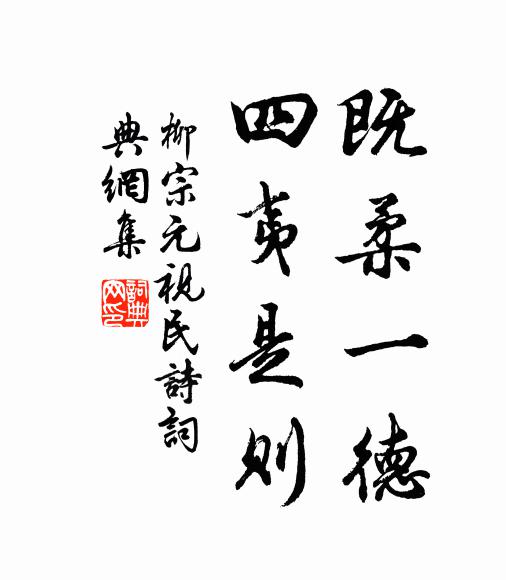 既柔一德
四夷是则
柳宗元視民詩詞
典網集
詞典網印